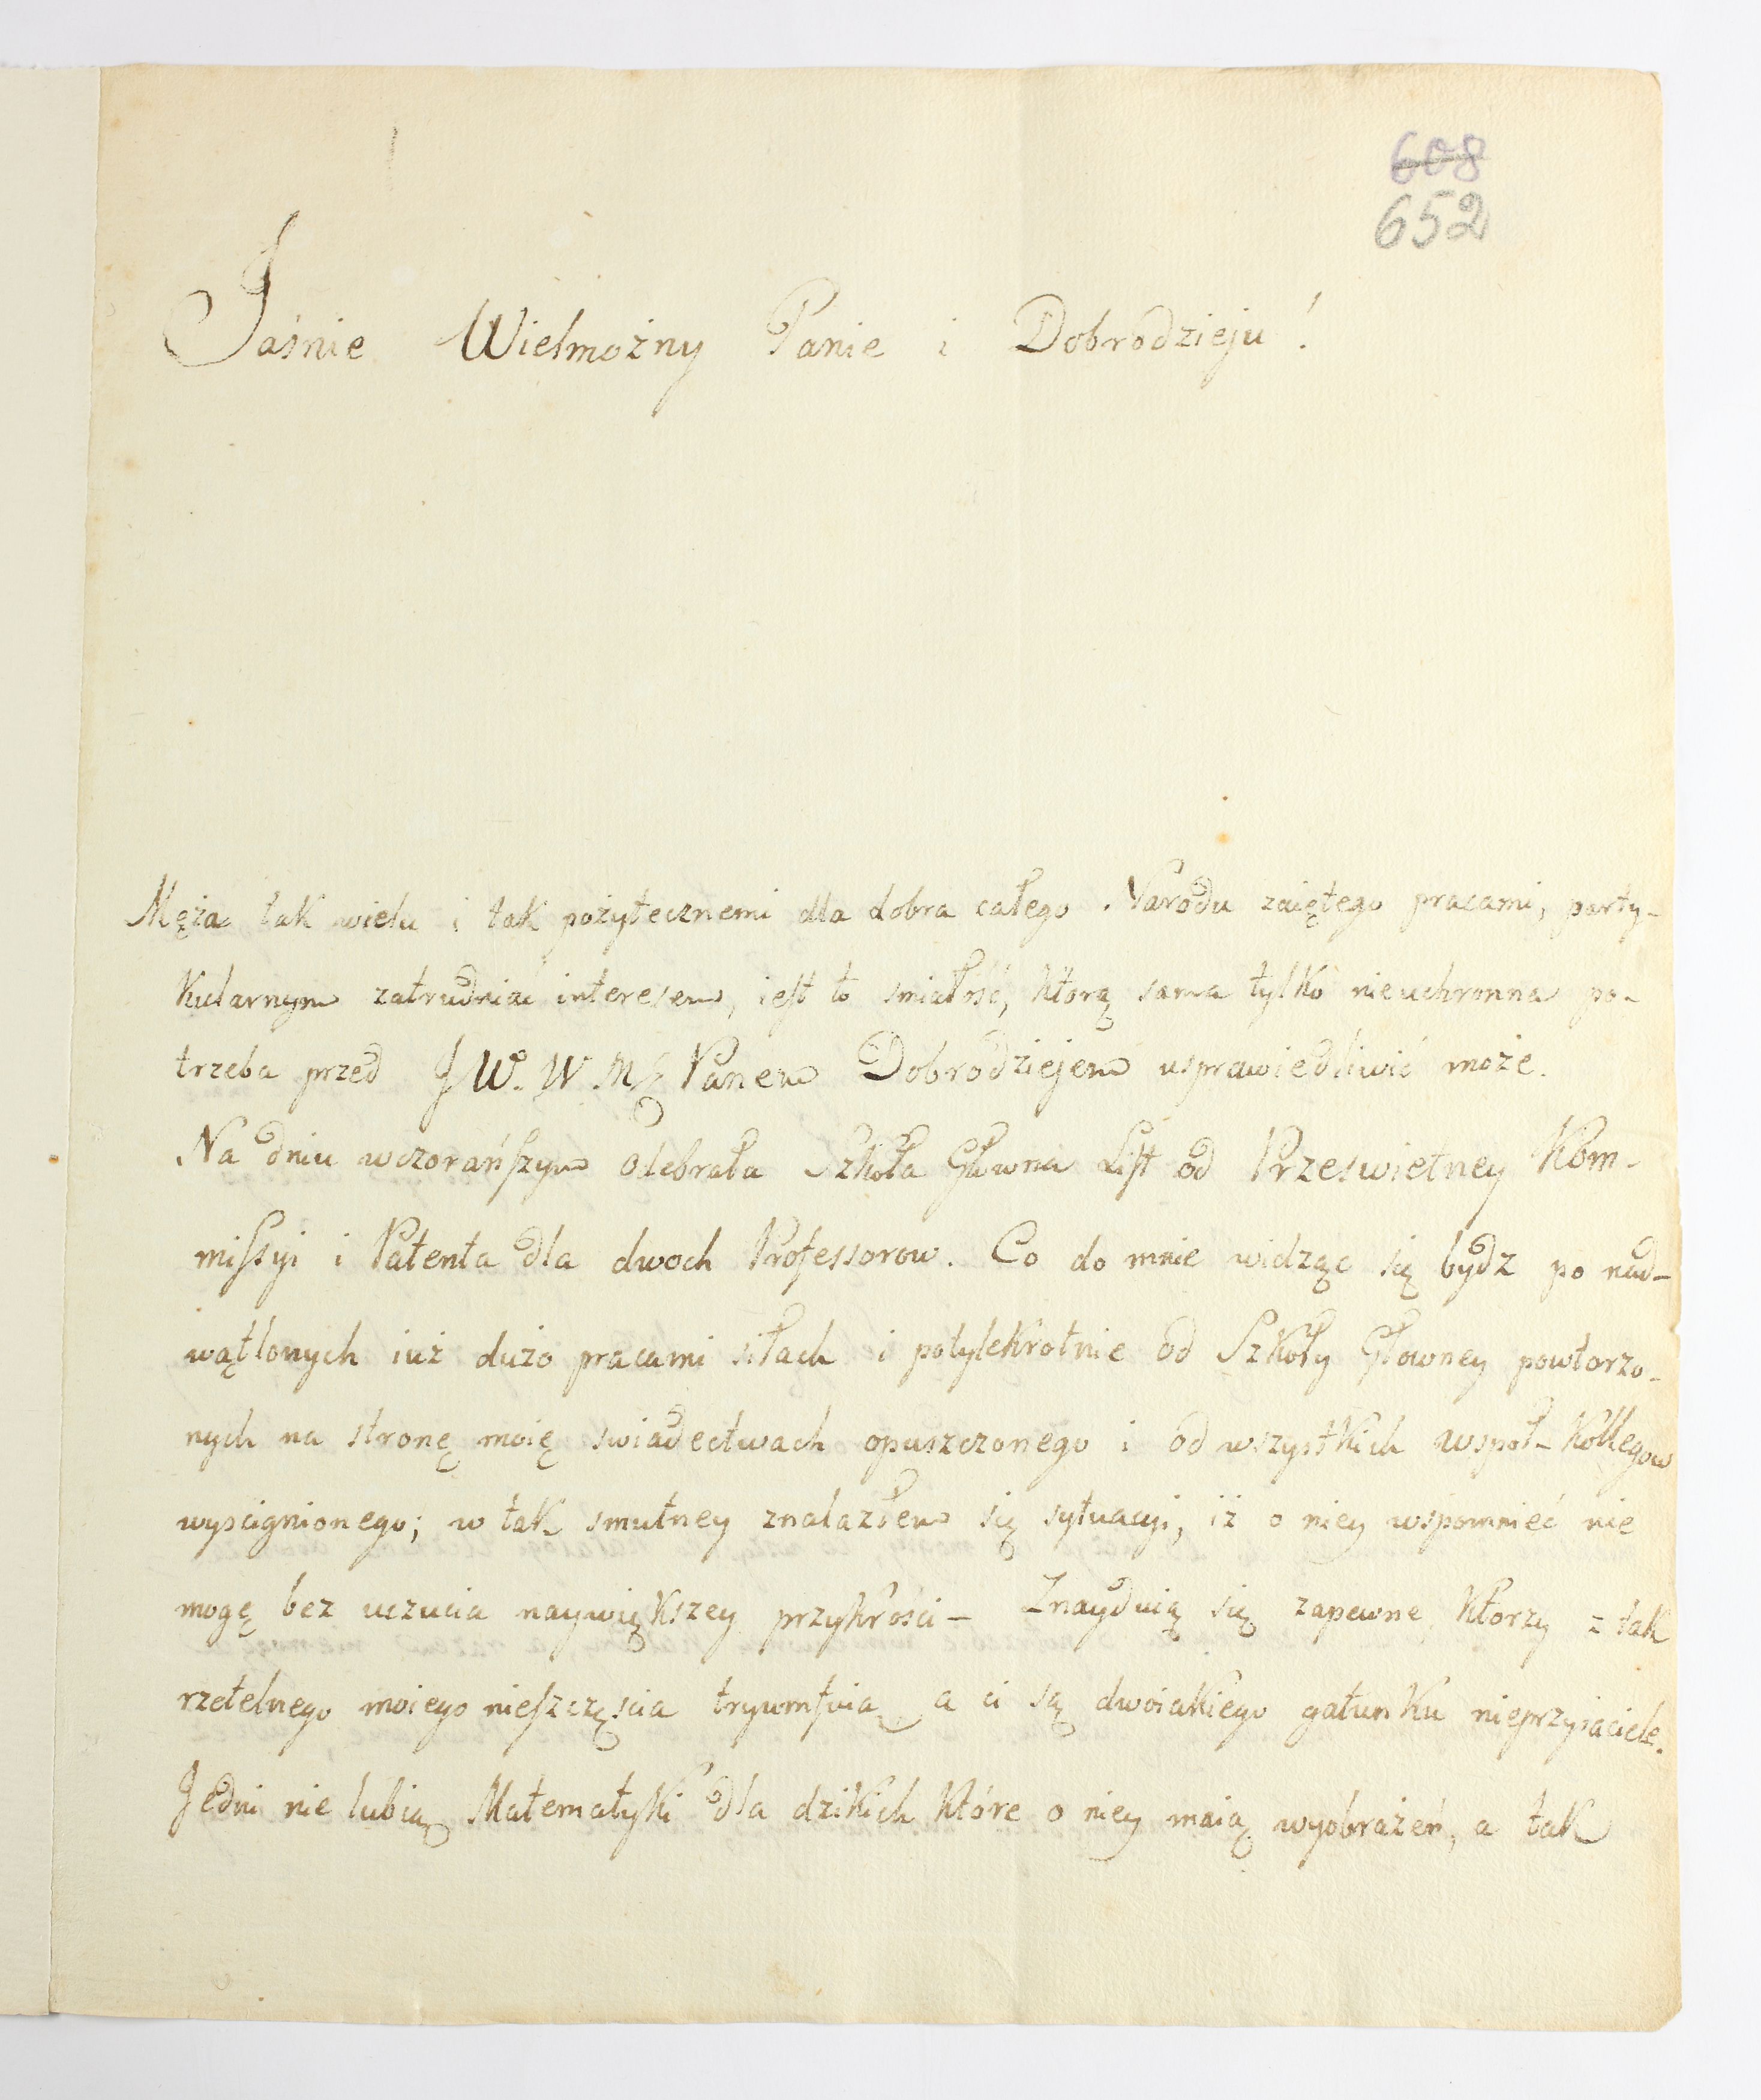 608
652
Jaśnie Wielmożny Panie i Dobrodzieju!
Męża tak wielu i tak pożytecznemi dla dobra całego Narodu zaiętego pracami, party-
kularnym zatrudniać interesem, iest to smiałość, ktorą sama tylko nieuchronna po-
trzeba przed JW. W M Panem Dobrodziejem usprawiedliwić może.
Na dniu wczorańszym odebrała Szkoła Głowna List od Przeswietney Kom-
missyi i Patenta dla dwoch Professorow. Co do mnie widząc się bydz po nad-
wątlonych iuż dużo pracami siłach i potylekrotnie od Szkoły Głowney powtorzo-
nych na stronę moię swiadectwach opuszczonego i od wszystkich wspoł-Kollegow
wyscignionego; w tak smutney znalazłem się sytuacyi, iż o niey wspomnieć nie
mogę bez uczucia naywiększey przykrości - Znayduią się zapewne ktorzy z tak
rzetelnego moiego nieszczęscia tryumfuią, a ci są dwoiakiego gatunku nieprzyiaciele.
Jedni nie lubią Matematyki dla dzikich które o niey maią wyobrażeń, a tak